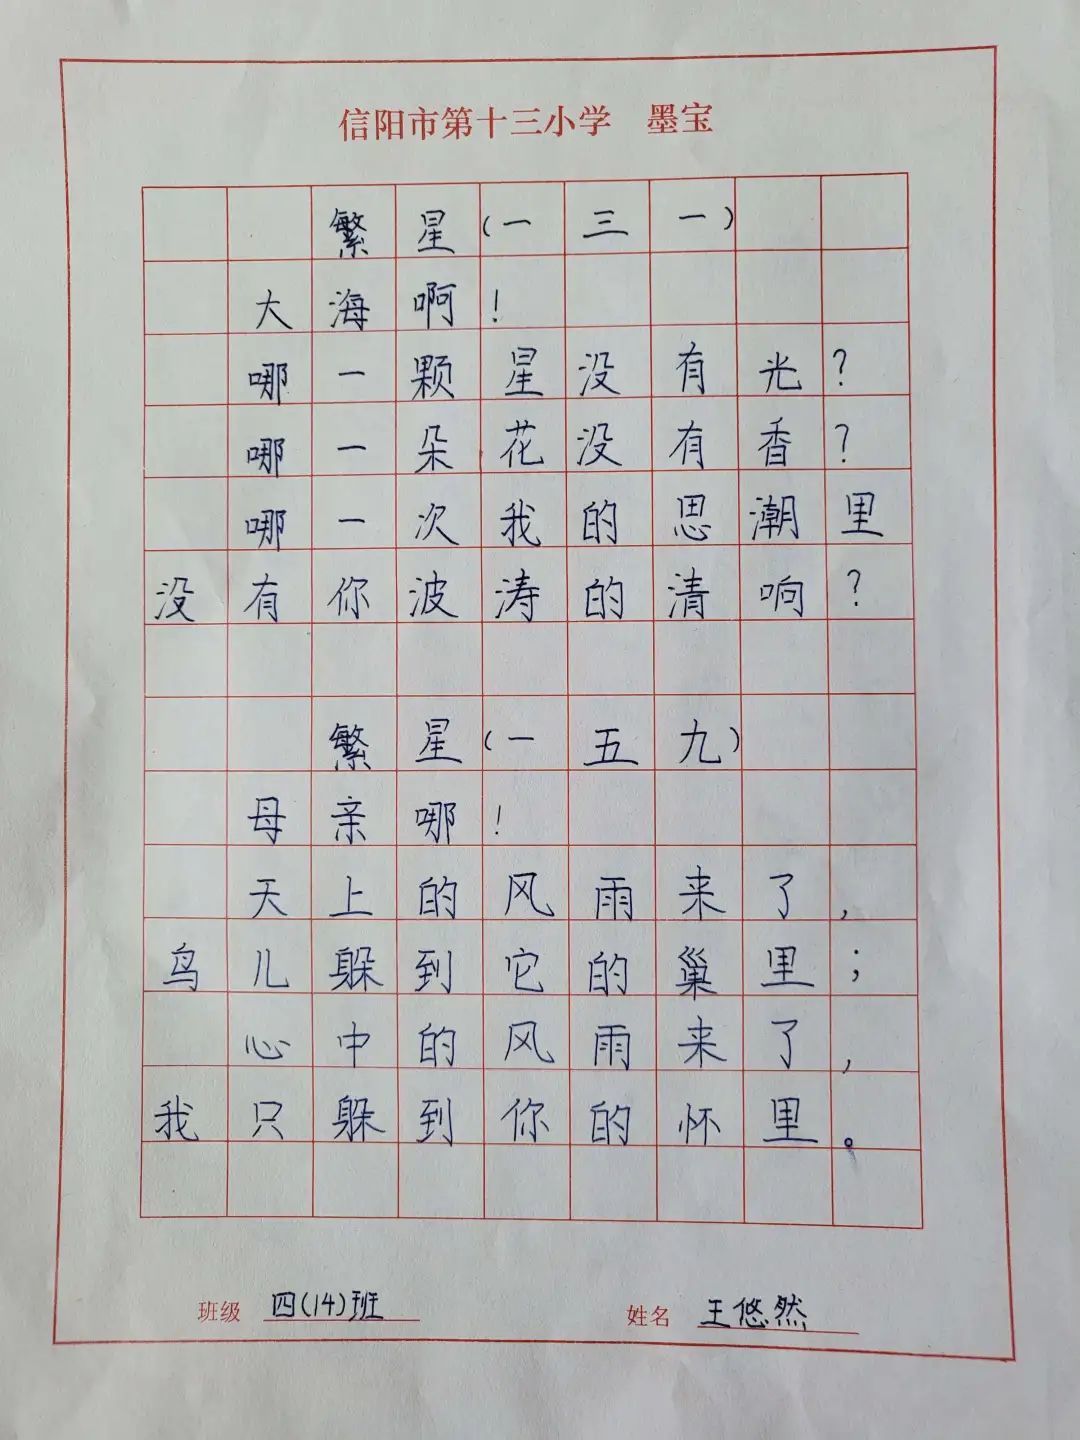 信阳市第十三小学 墨宝
繁星(一三一)
大海啊!
哪一颗星没有光?
哪一朵花没有香?
哪一次我的思潮里
没有你波涛的清响?
繁星(一五九)
母亲哪!
天上的风雨来了,
鸟儿躲到它的巢里;
心中的风雨来了,
我只躲到你的怀里。
班级 四(14)班 姓名 王悠然